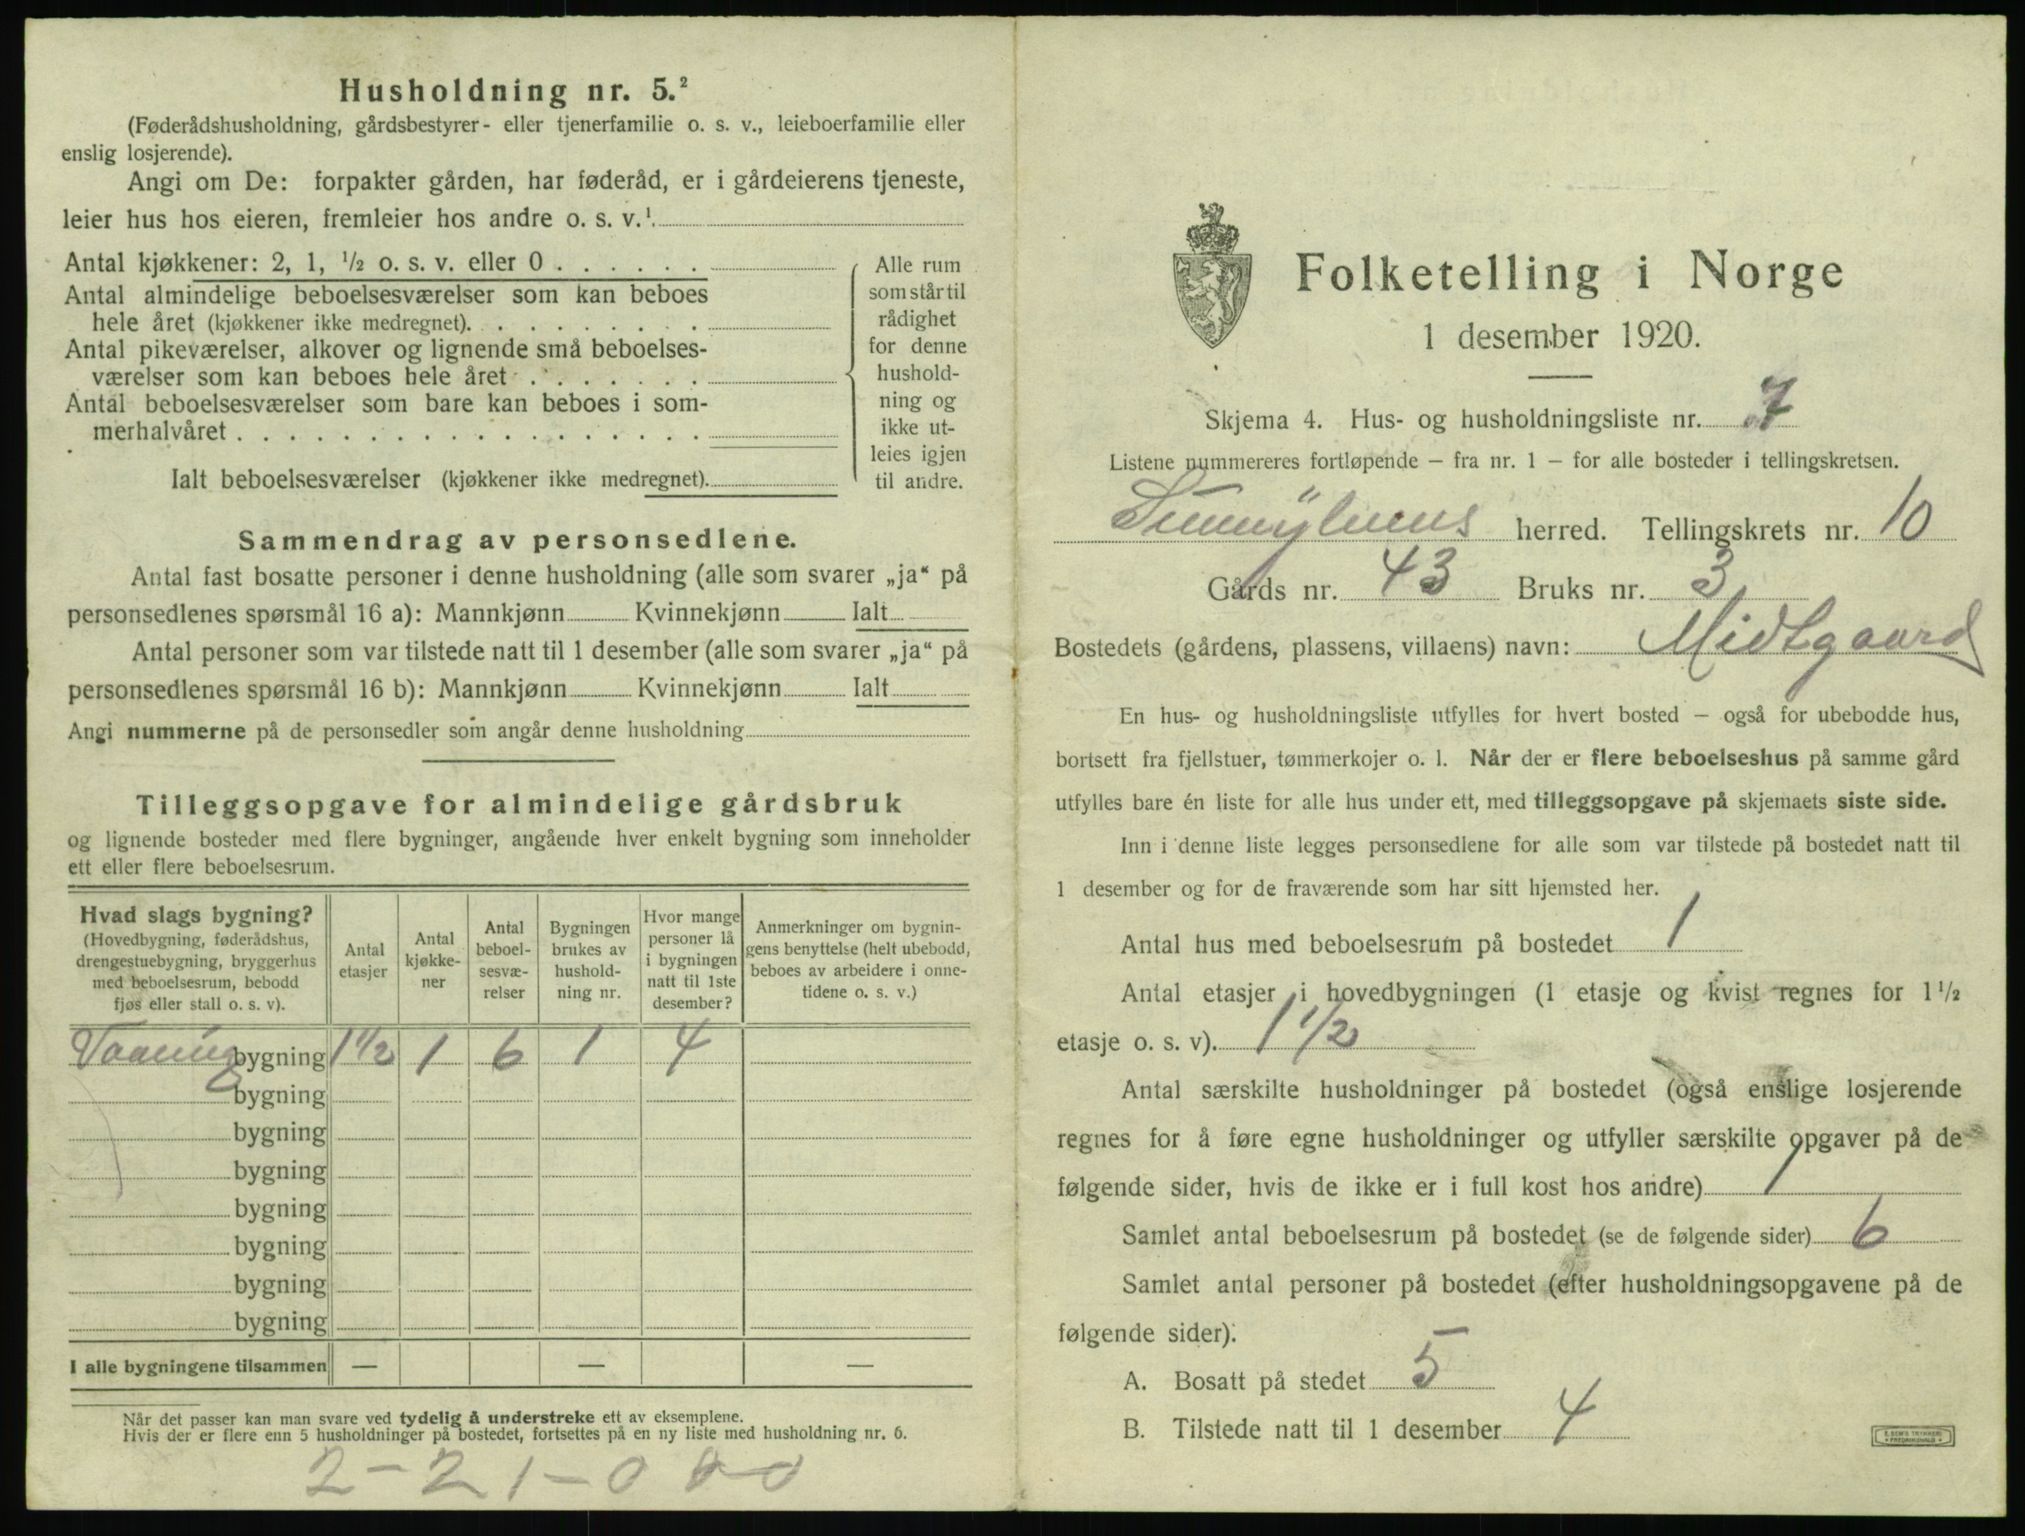 Husholdning nr. 5.²
(Føderådshusholdning, gårdsbestyrer- eller tjenerfamilie o. s. v., leieboerfamilie eller
enslig losjerende).
Angi om De: forpakter gården, har føderåd, er i gårdeierens tjeneste,
leier hus hos eieren, fremleier hos andre o. s. v.¹
Antal kjøkkener: 2, 1, ½ o. s. v. eller 0
Antal almindelige beboelsesværelser som kan beboes
hele året (kjøkkener ikke medregnet).
Antal pikeværelser, alkover og lignende små beboelses-
værelser som kan beboes hele året
Antal beboelsesværelser som bare kan beboes i som-
merhalvåret
Ialt beboelsesværelser (kjøkkener ikke medregnet).
Alle rum
som står til
rådighet
for denne
hushold-
ning og
ikke ut-
leies igjen
til andre.
Sammendrag av personsedlene.
Antal fast bosatte personer i denne husholdning (alle som svarer „ja“ på
personsedlenes spørsmål 16 a): Mannkjønn Kvinnekjønn Ialt
Antal personer som var tilstede natt til 1 desember (alle som svarer „ja“ på
personsedlenes spørsmål 16 b): Mannkjønn Kvinnekjønn Ialt
Angi nummerne på de personsedler som angår denne husholdning
Tilleggsopgave for almindelige gårdsbruk
og lignende bosteder med flere bygninger, angående hver enkelt bygning som inneholder
ett eller flere beboelsesrum.
Hvad slags bygning?
(Hovedbygning, føderådshus,
drengestuebygning, bryggerhus
med beboelsesrum, bebodd
fjøs eller stall o. s. v).
Antal
etasjer
Antal
kjøkke-
ner
Antal
beboel-
sesvæ-
relser
Bygningen
brukes av
hushold-
ning nr.
Hvor mange
personer lå
i bygningen
natt til 1ste
desember?
Anmerkninger om bygnin-
gens benyttelse (helt ubebodd,
beboes av arbeidere i onne-
tidene o. s. v.)
Vaaning bygning 1½ 1 6 1 4
bygning
bygning
bygning
bygning
bygning
bygning
bygning
I alle bygningene tilsammen — — —
Når det passer kan man svare ved tydelig å understreke ett av eksemplene.
Hvis der er flere enn 5 husholdninger på bostedet, fortsettes på en ny liste med husholdning nr. 6.
Folketelling i Norge
1 desember 1920.
Skjema 4. Hus- og husholdningsliste nr. 7
Listene nummereres fortløpende — fra nr. 1 — for alle bosteder i tellingskretsen.
Sunnylvens herred. Tellingskrets nr. 10
Gårds nr. 43 Bruks nr. 3
Bostedets (gårdens, plassens, villaens) navn: Midtgaard
En hus- og husholdningsliste utfylles for hvert bosted — også for ubebodde hus,
bortsett fra fjellstuer, tømmerkojer o. l. Når der er flere beboelseshus på samme gård
utfylles bare én liste for alle hus under ett, med tilleggsopgave på skjemaets siste side.
Inn i denne liste legges personsedlene for alle som var tilstede på bostedet natt til
1 desember og for de fraværende som har sitt hjemsted her.
Antal hus med beboelsesrum på bostedet 1
Antal etasjer i hovedbygningen (1 etasje og kvist regnes for 1½
etasje o. s. v). 1½
Antal særskilte husholdninger på bostedet (også enslige losjerende
regnes for å føre egne husholdninger og utfyller særskilte opgaver på de
følgende sider, hvis de ikke er i full kost hos andre) 1
Samlet antal beboelsesrum på bostedet (se de følgende sider) 6
Samlet antal personer på bostedet (efter husholdningsopgavene på de
følgende sider):
A. Bosatt på stedet 5
B. Tilstede natt til 1 desember 4